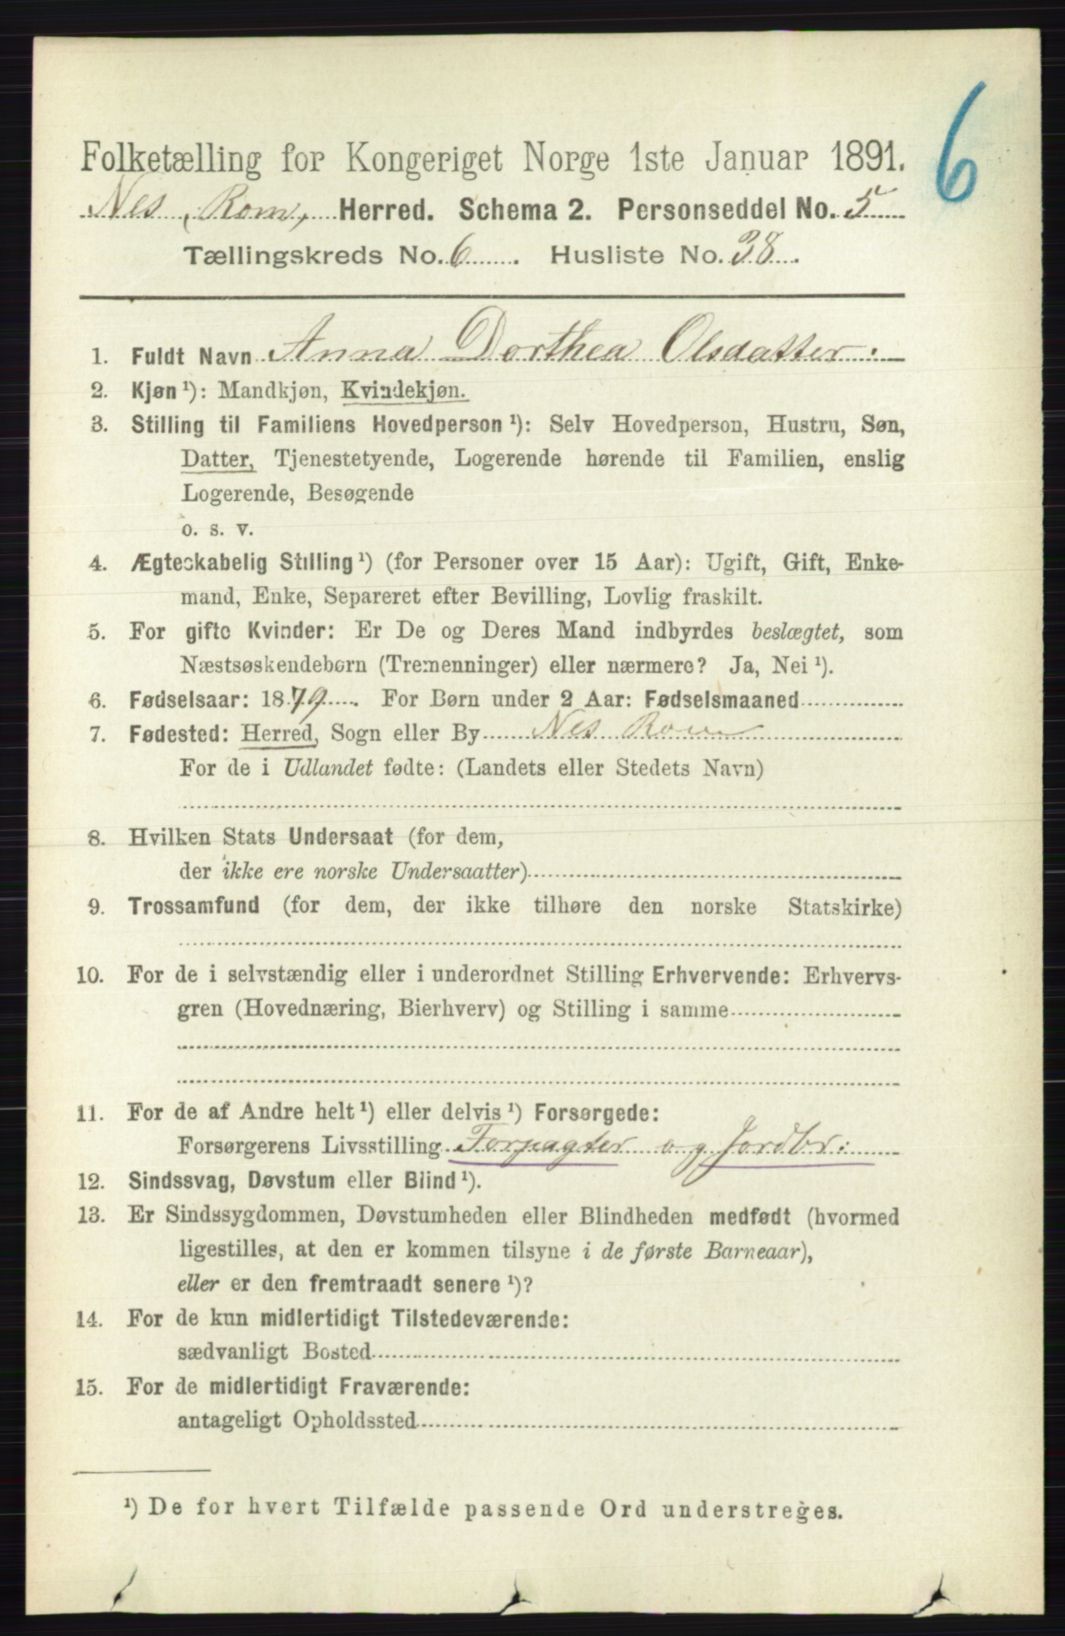 6
Folketælling for Kongeriget Norge 1ste Januar 1891.
Nes, Rom, Herred. Schema 2. Personseddel No. 5
Tællingskreds No. 6. Husliste No. 38.
1. Fuldt Navn Anna Dorthea Olsdatter.
2. Kjøn ¹): Mandkjøn, Kvindekjøn.
3. Stilling til Familiens Hovedperson ¹): Selv Hovedperson, Hustru, Søn,
Datter, Tjenestetyende, Logerende hørende til Familien, enslig
Logerende, Besøgende
o. s. v.
4. Ægteskabelig Stilling ¹) (for Personer over 15 Aar): Ugift, Gift, Enke-
mand, Enke, Separeret efter Bevilling, Lovlig fraskilt.
5. For gifte Kvinder: Er De og Deres Mand indbyrdes beslægtet, som
Næstsøskendebørn (Tremenninger) eller nærmere? Ja, Nei ¹).
6. Fødselsaar: 1879. For Børn under 2 Aar: Fødselsmaaned
7. Fødested: Herred, Sogn eller By Nes Rom
For de i Udlandet fødte: (Landets eller Stedets Navn)
8. Hvilken Stats Undersaat (for dem,
der ikke ere norske Undersaatter)
9. Trossamfund (for dem, der ikke tilhøre den norske Statskirke)
10. For de i selvstændig eller i underordnet Stilling Erhvervende: Erhvervs-
gren (Hovednæring, Bierhverv) og Stilling i samme
11. For de af Andre helt ¹) eller delvis ¹) Forsørgede:
Forsørgerens Livsstilling Forpagter og Jordbr:
12. Sindssvag, Døvstum eller Blind ¹).
13. Er Sindssygdommen, Døvstumheden eller Blindheden medfødt (hvormed
ligestilles, at den er kommen tilsyne i de første Barneaar),
eller er den fremtraadt senere ¹)?
14. For de kun midlertidigt Tilstedeværende:
sædvanligt Bosted
15. For de midlertidigt Fraværende:
antageligt Opholdssted
¹) De for hvert Tilfælde passende Ord understreges.